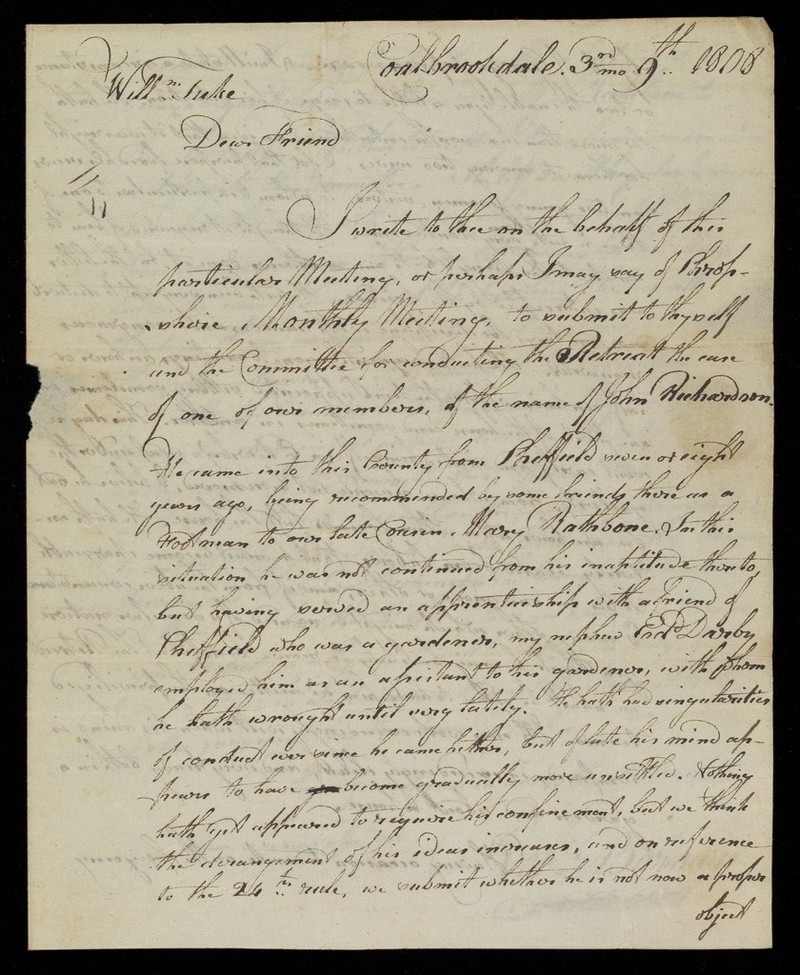 Coalbrookdale. 3rd mo 9th. 1808
Willm. Tuke
Dear Friend
I write to thee on the behalf of this
particular Meeting, or perhaps I may say of Shrop-
shire Monthly Meeting, to submit to thyself
and the Committee for conducting the Retreat the case
of one of our members, of the name of John Richardson.
He came into this County from Sheffield seven or eight
years ago, being recommended by some friends there as a
Footman to our late Cousin Mary Rathbone. In this
situation he was not continued from his inaptitude thereto,
but having served an apprenticeship with a friend of
Sheffield who was a gardener, my nephew Edd Darby
employed him as an assistant to his gardener, with whom
he hath wrought until very lately. He hath had singularities
of conduct ever since he came hither, but of late his mind ap-
pears to have become gradually more unsettled. Nothing
hath yet appeared to require his confinement, but we think
the derangement of his ideas increases, and on reference
to the 24th rule, we submit whether he is not now a proper
object